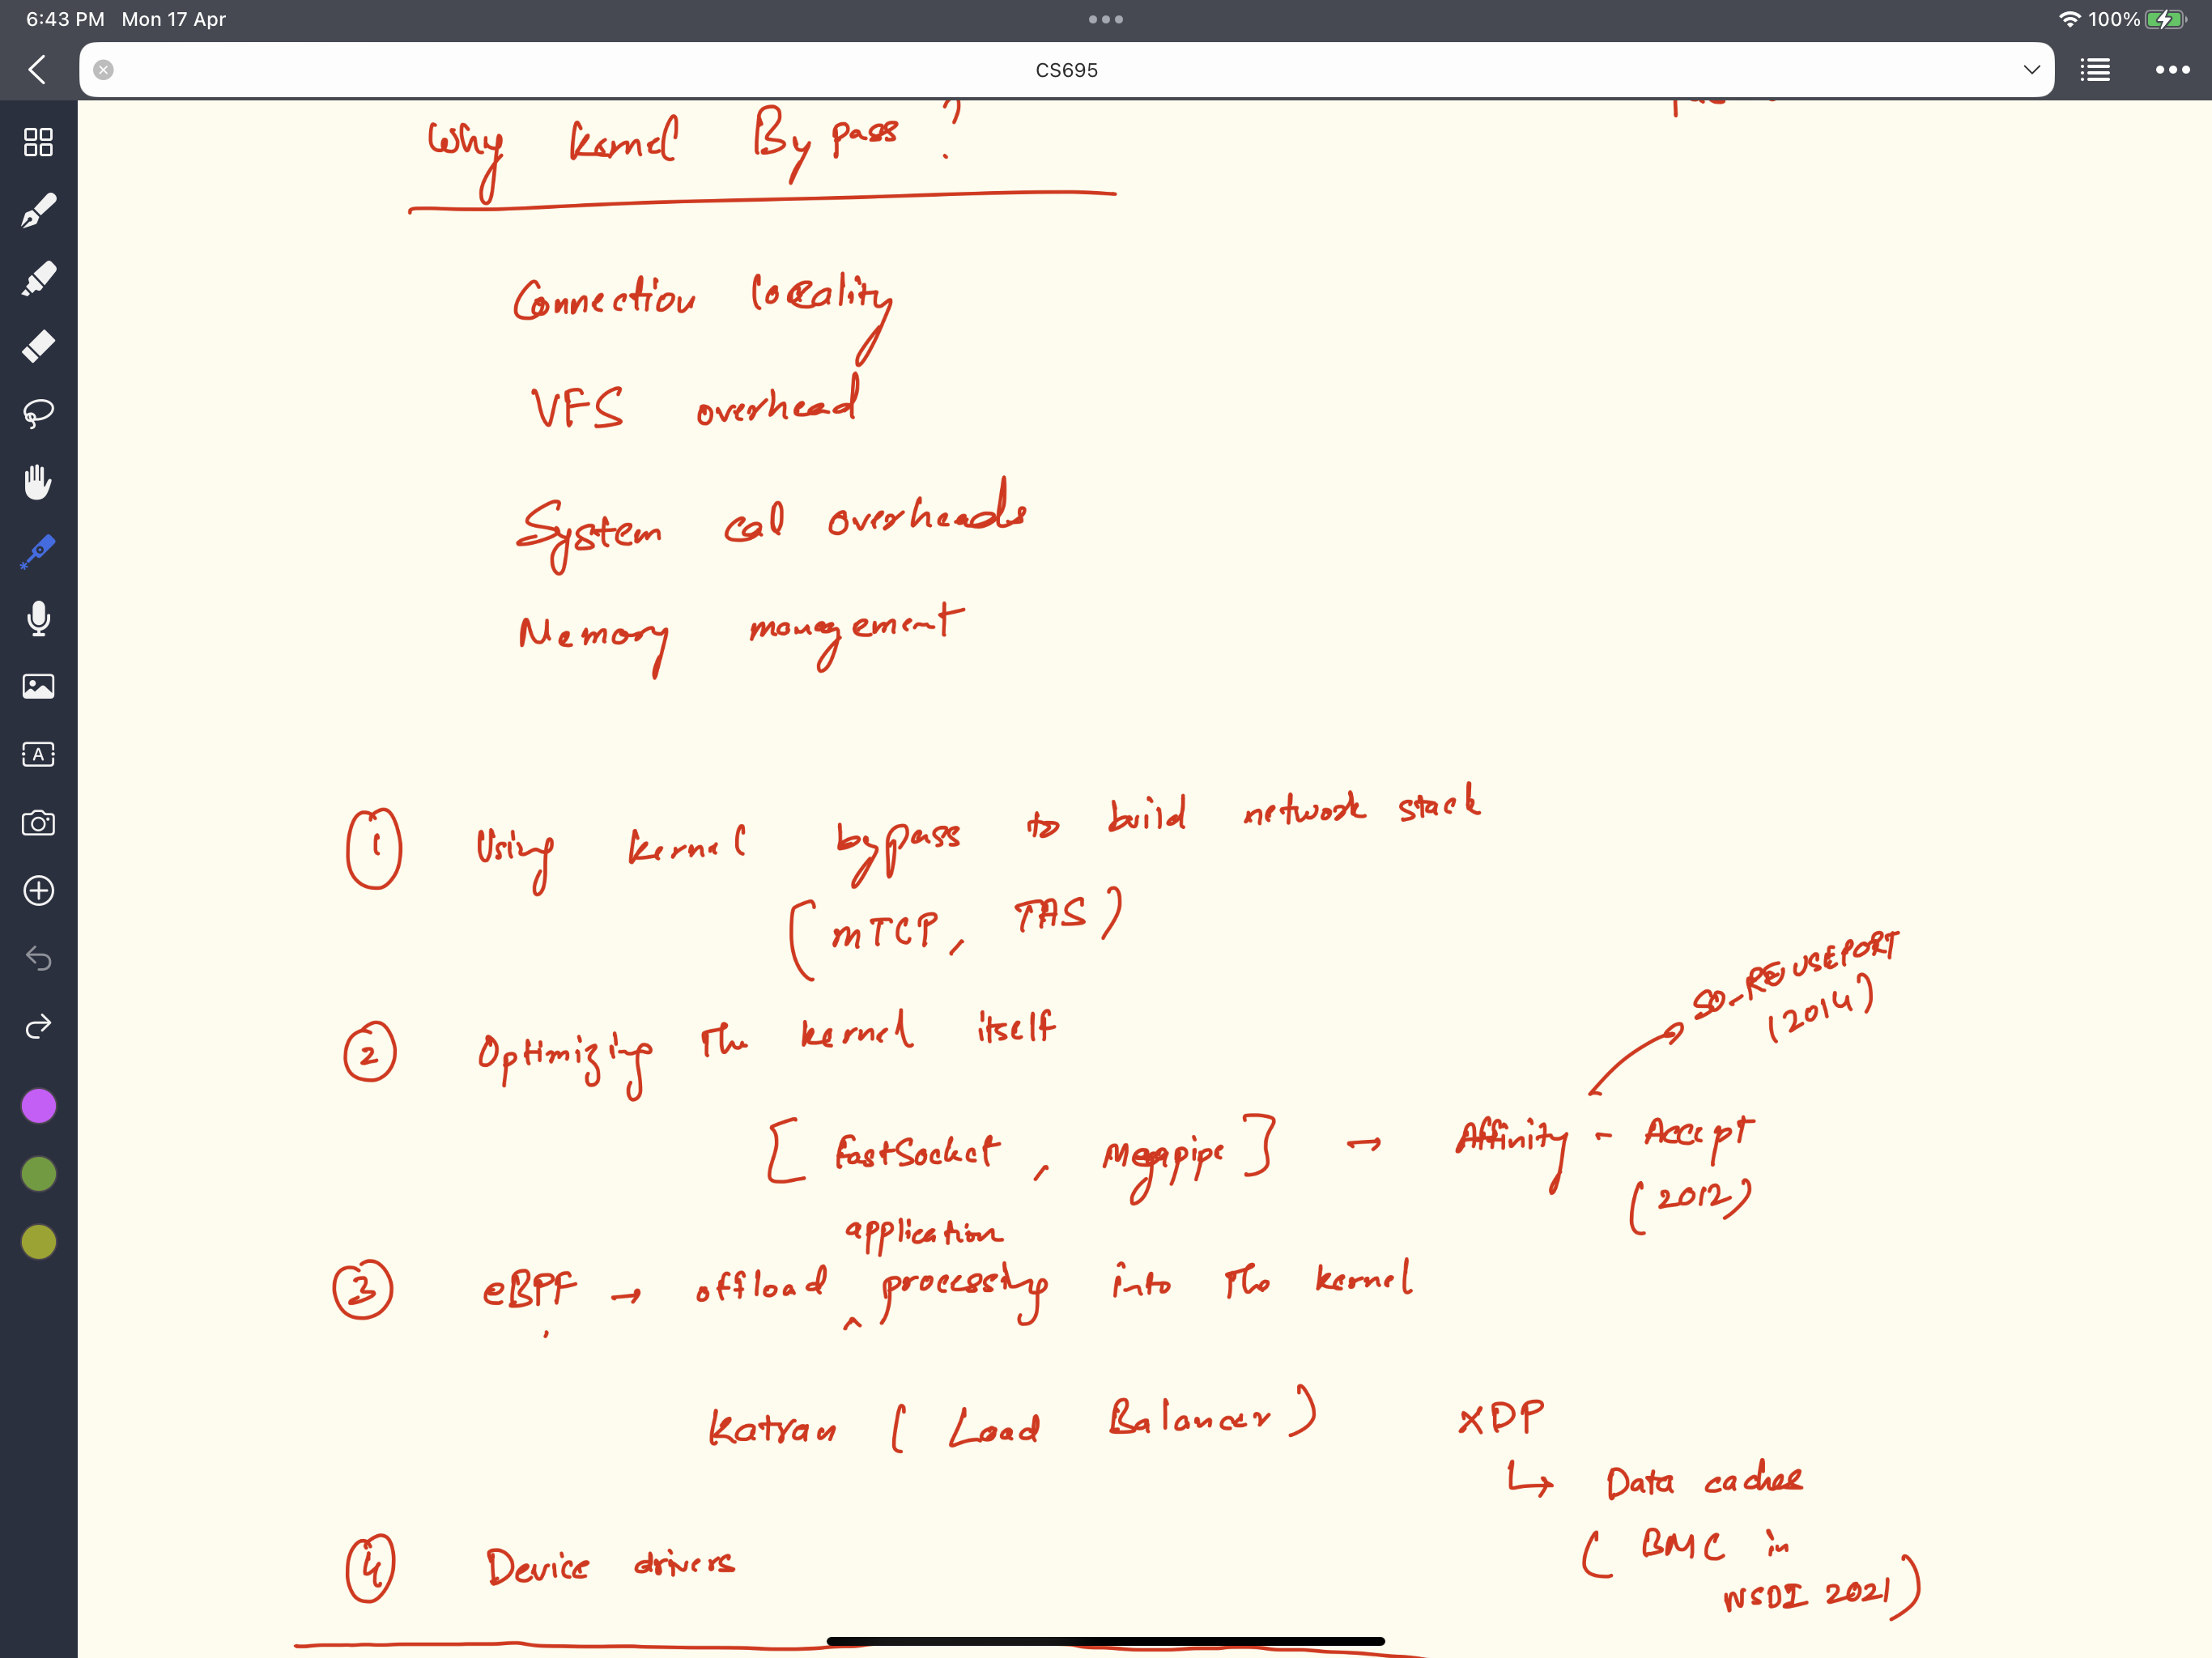 6:43 PM Mon 17 Apr
100%
CS695
Why kernel Bypass?
Connection locality
VFS overhead
System call overheads
Memory management
1 Using kernel bypass to build network stack
(mTCP, TAS)
2 Optimizing the kernel itself
SO_REUSEPORT
(2014)
[FastSocket, Megapipe] → Affinity - Accept
(2012)
application
3 eBPF → offload ^ processing into the kernel
Katran (Load Balancer) XDP
↳ Data caches
(BMC in
NSDI 2021)
4 Device drivers